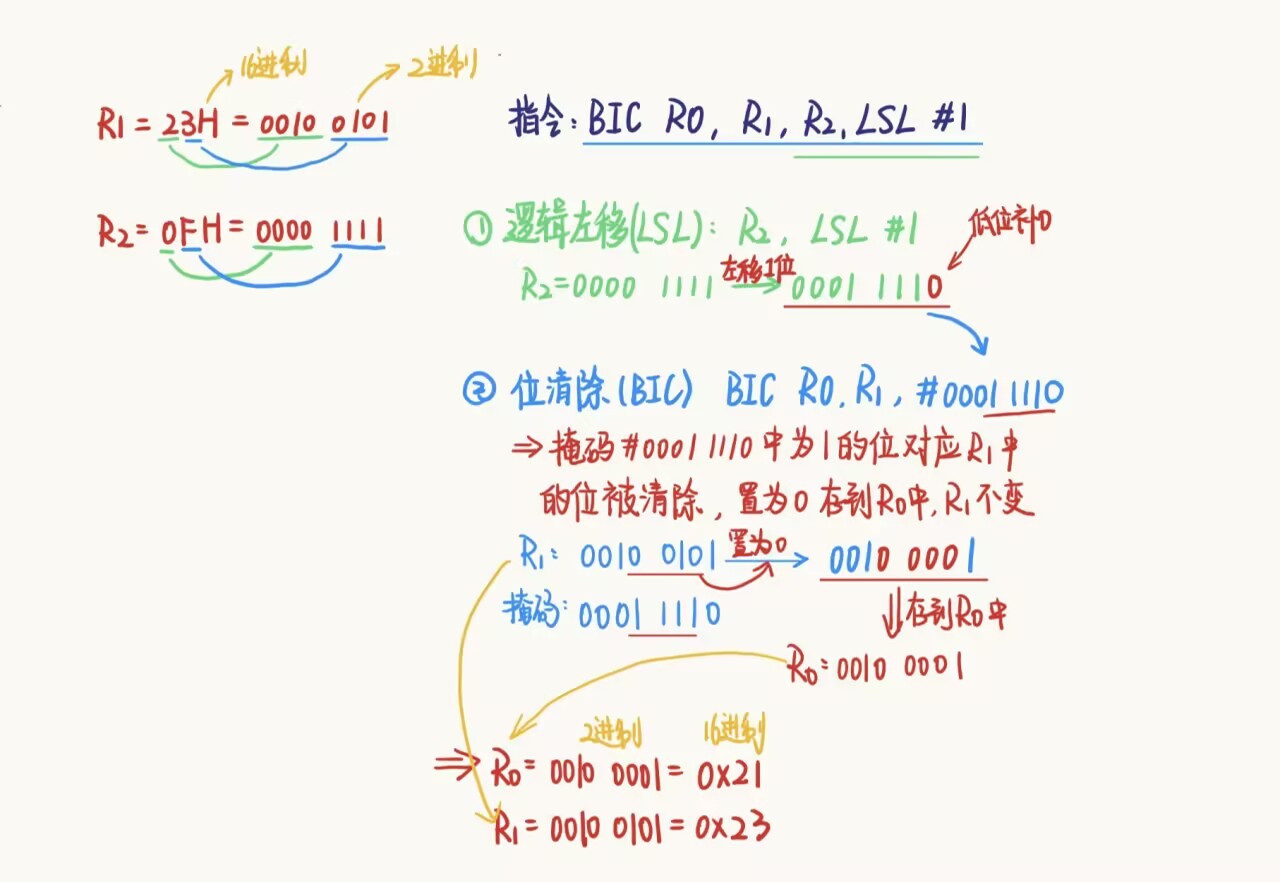 16进制 2进制
R1 = 23H = 0010 0101
指令: BIC R0, R1, R2, LSL #1
R2 = 0FH = 0000 1111
① 逻辑左移(LSL): R2, LSL #1
低位补0
R2=0000 1111 左移1位 0001 1110
② 位清除(BIC) BIC R0, R1, #0001 1110
⇒ 掩码 #0001 1110 中为1的位对应R1中
的位被清除, 置为0 存到R0中, R1不变
R1: 0010 0101 置为0 0010 0001
掩码: 0001 1110
存到R0中
R0: 0010 0001
2进制 16进制
⇒ R0 = 0010 0001 = 0x21
R1 = 0010 0101 = 0x23